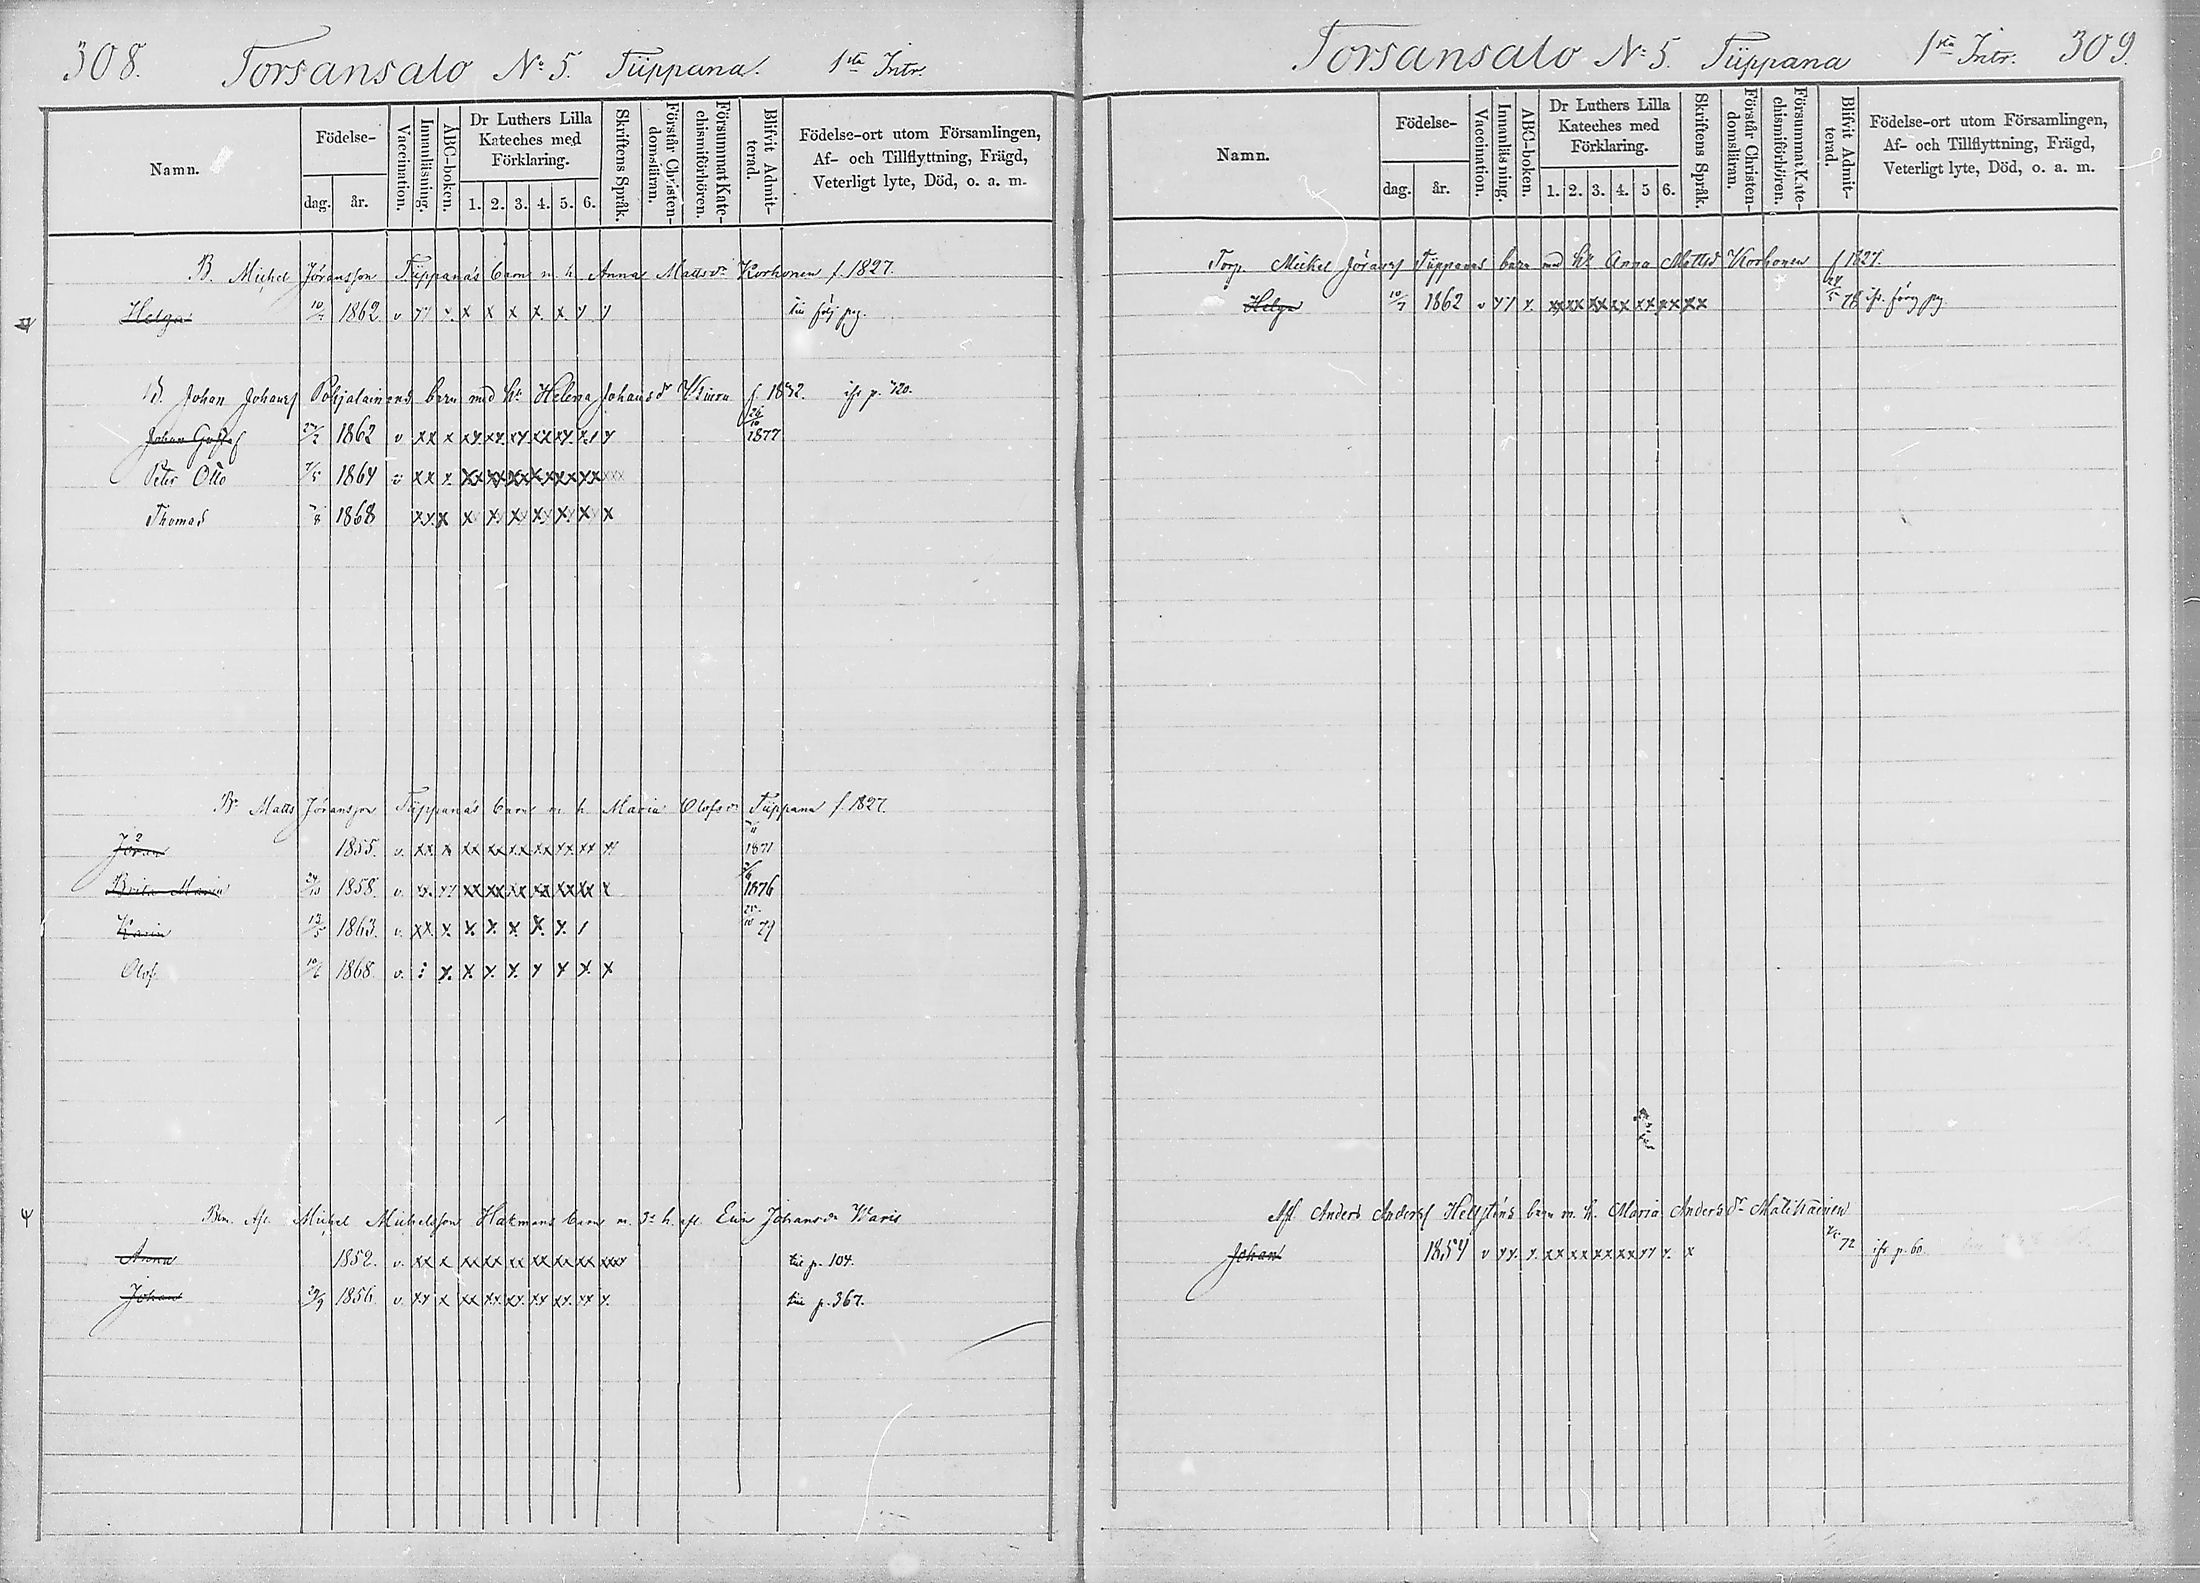 308. Torsansalo No 5. Tiippana. 1sta Intr.
Namn. Födelse- dag. år. Vaccination. Innanläsning. ABC-boken. Dr Luthers Lilla Kateches med Förklaring. 1. 2. 3. 4. 5. 6. Skriftens Språk. Förstår Christendomsläran. Försummat Katechismiförhören. Blifvit Admitterad. Födelse-ort utom Församlingen, Af- och Tillflyttning, Frägd, Veterligt lyte, Död, o. a. m.
B. Michel Jöransson Tiippana's barn m. h. Anna Mattsdr Korhonen f. 1827.
Helga 10/7 1862 v xx x. x x x x. x x x följ pag.
B. Johan Johanss Pohjalainens barn med h. Helena Johansdr f. 1832. p. 720.
Johan Gustaf 1862 v xx x xx. xx. xx. xx xx. x 26/10 1877
Peter Otto 1864 v xx x. xx xx xx xx xx xx xxx
Thomas 1868 xx x x x x x x. x x
Bn Matts Jöransson Tiippana's barn m. h. Maria Olofsdr Tiippana f. 1827.
Jöran 1855. v. xx x xx xx xx xx xx. xx x 1871
Brita Maria 1858 v. xx. xx xx xx xx xx xx xx x 1876
Karin 1863. v. xx x. x. x. x. x. x. / 79
Olof. 1868. v. x. x. x. x. x x x. x
Michel Michelsson Hakmans barn m. 3e h. Johansdr Waris
Anna 1852. v. xx x xx xx xx xx xx xx xxx p. 104.
Johan 29/9 1856 v. xx x xx xx. xx. xx xx. xx x. p. 367.
Torsansalo No 5. Tiippana 1sta Intr. 309.
Namn. Födelse- dag. år. Vaccination. Innanläsning. ABC-boken. Dr Luthers Lilla Kateches med Förklaring. 1. 2. 3. 4. 5 6. Skriftens Språk. Förstår Christendomsläran. Försummat Katechismiförhören. Blifvit Admitterad. Födelse-ort utom Församlingen, Af- och Tillflyttning, Frägd, Veterligt lyte, Död, o. a. m.
Torp. Mickel Jöranss Tiippanas barn med h. Anna Mattsdr Korhonen f 1827.
Helga 10/7 1862 v xx x. xx xx xx xx xx xx xx 78 förg pag
Anders Anderss barn m. h. Maria Andersdr Matikainen
Johan 1854 v xx. x. xx xx xx xx xx x. x 72 p. 60